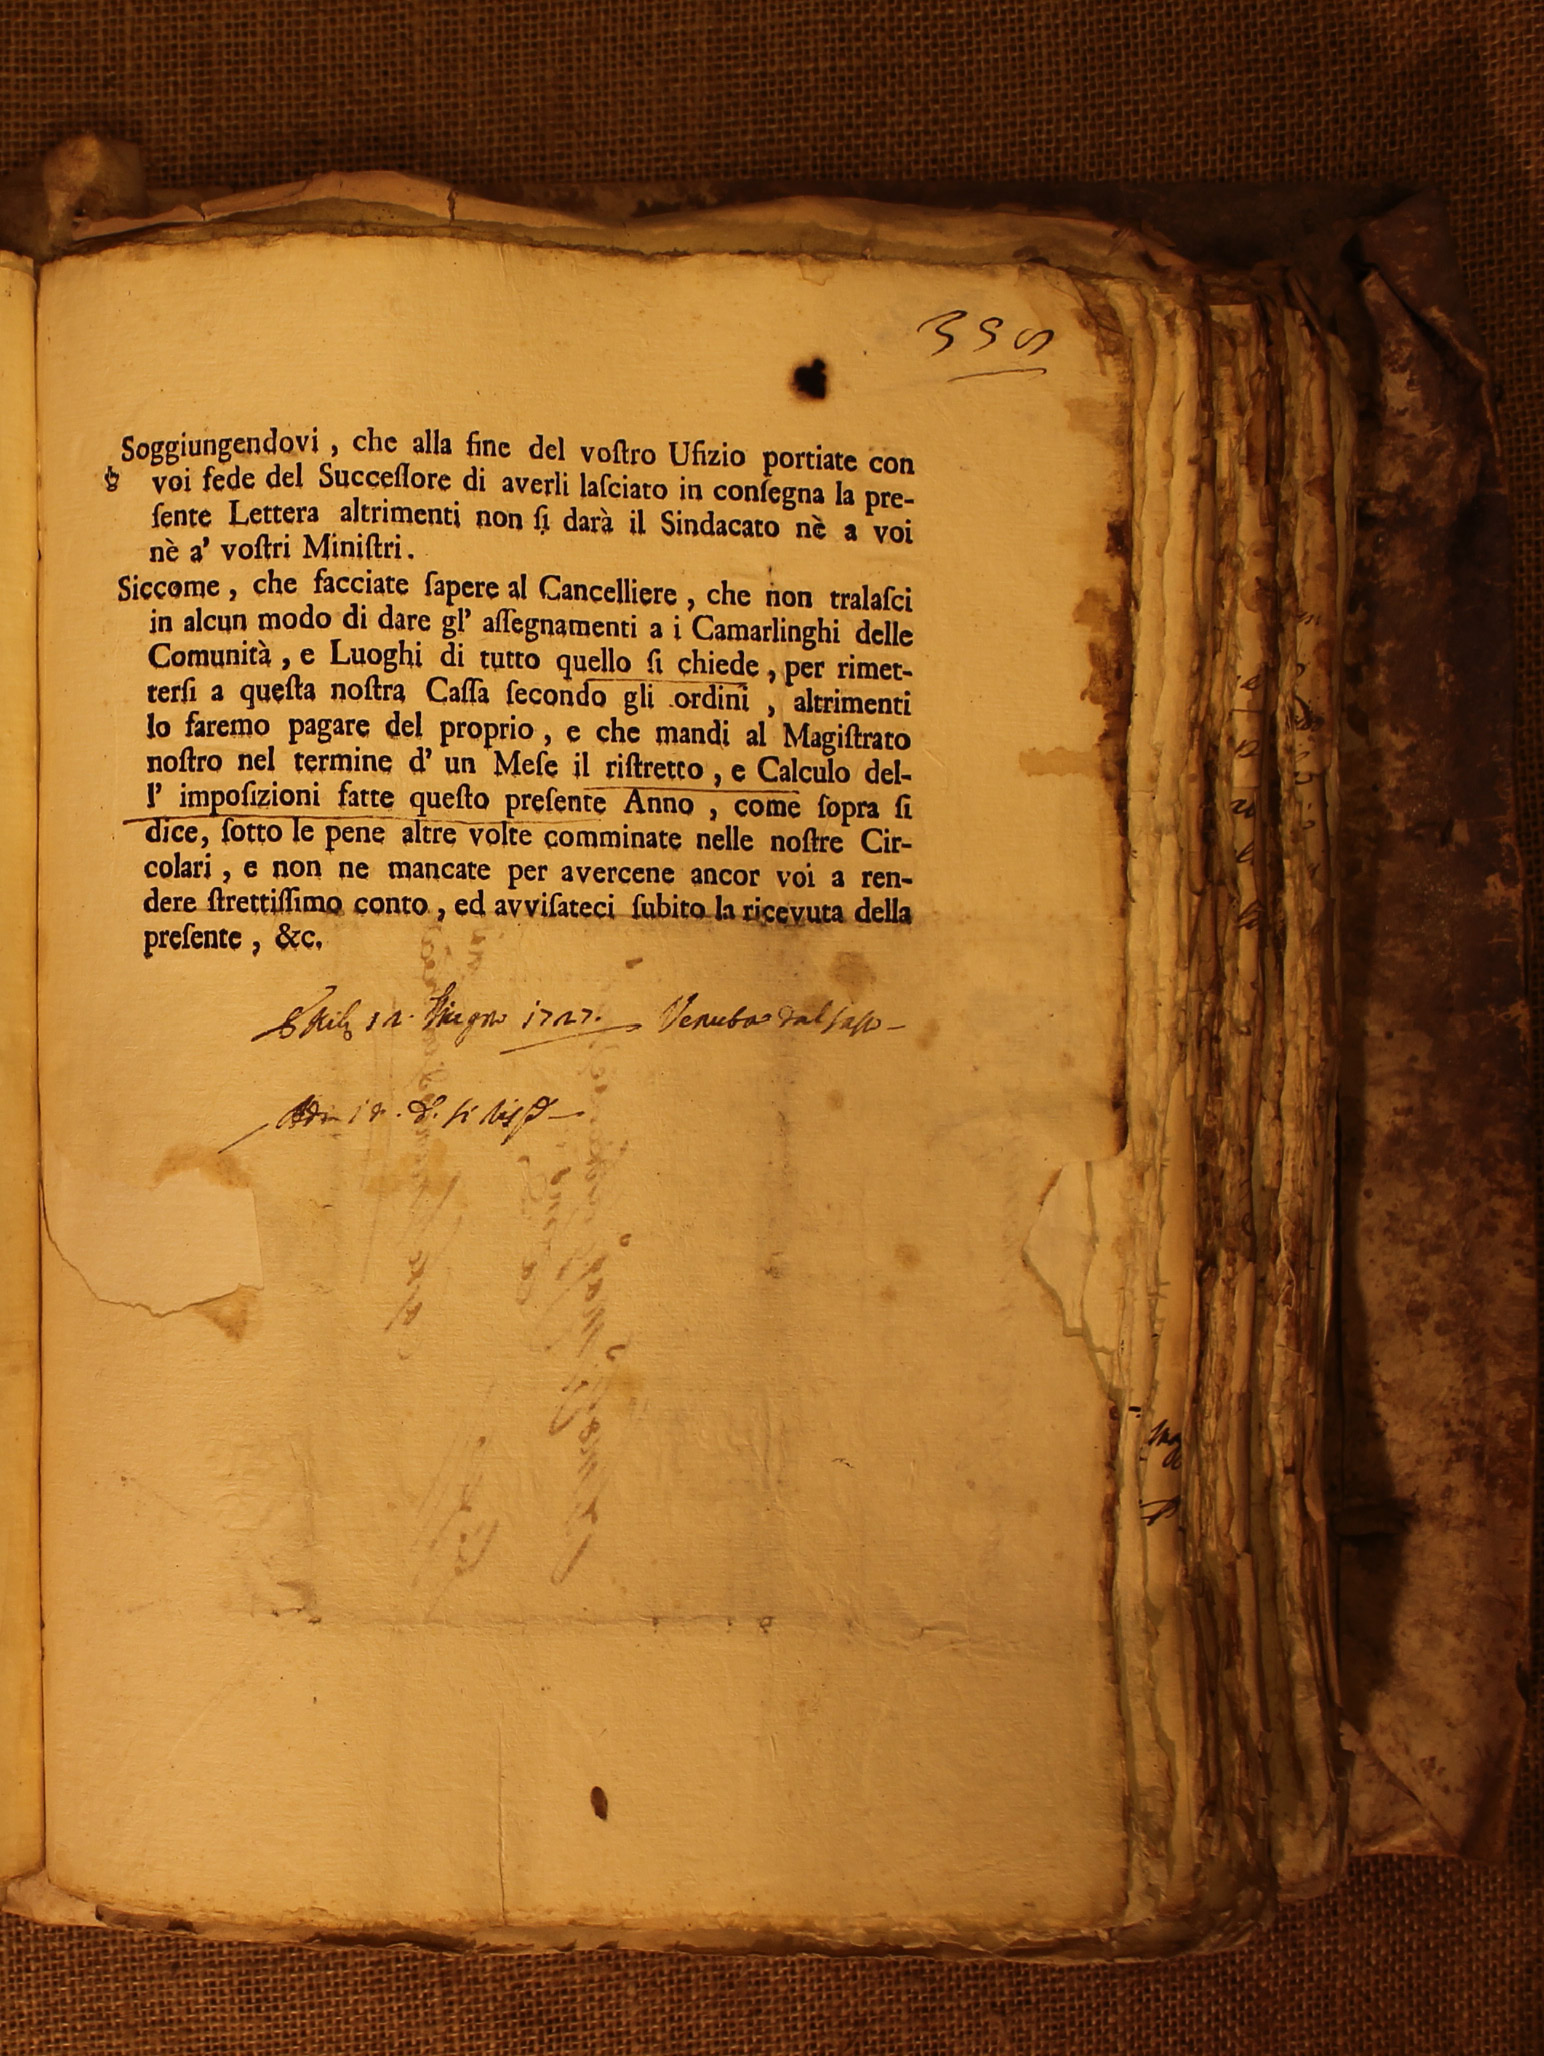 335
Soggiungendovi , che alla fine del voſtro Ufizio portiate con
voi fede del Succeſſore di averli laſciato in conſegna la pre-
ſente Lettera altrimenti non ſi darà il Sindacato nè a voi
nè a' voſtri Miniſtri .
Siccome , che facciate ſapere al Cancelliere , che non tralaſci
in alcun modo di dare gl' aſſegnamenti a i Camarlinghi delle
Comunità , e Luoghi di tutto quello ſi chiede , per rimet-
terſi a queſta noſtra Caſſa ſecondo gli ordini , altrimenti
lo faremo pagare del proprio , e che mandi al Magiſtrato
noſtro nel termine d' un Meſe il riſtretto , e Calculo del-
l' impoſizioni fatte queſto preſente Anno , come ſopra ſi
dice, ſotto le pene altre volte comminate nelle noſtre Cir-
colari , e non ne mancate per avercene ancor voi a ren-
dere ſtrettiſſimo conto , ed avviſateci ſubito la ricevuta della
preſente , &c.
Giugno 1727. Venuta dal